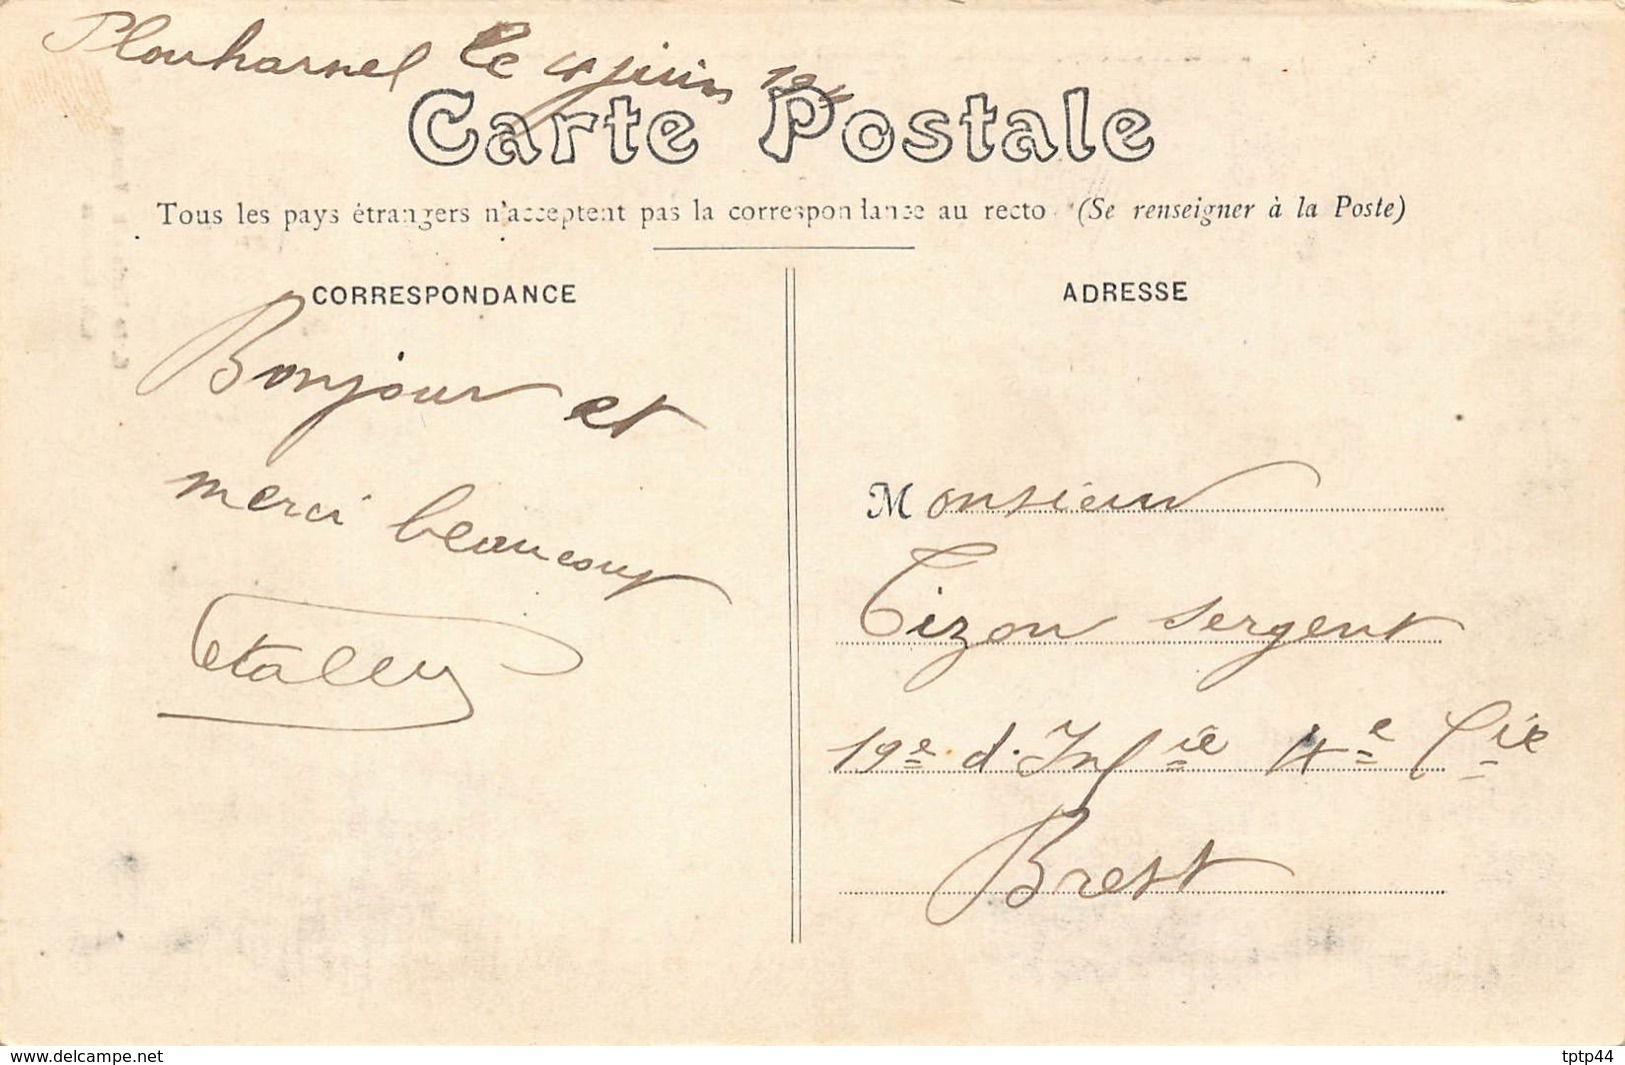 Plouharnel le 4 juin
Carte Postale
Tous les pays étrangers n'acceptent pas la correspondance au recto (Se renseigner à la Poste)
CORRESPONDANCE
Bonjour et
merci beaucoup
ADRESSE
Monsieur
Tizon sergent
19e d'Infie 4e Cie
Brest
www.delcampe.net
tptp44